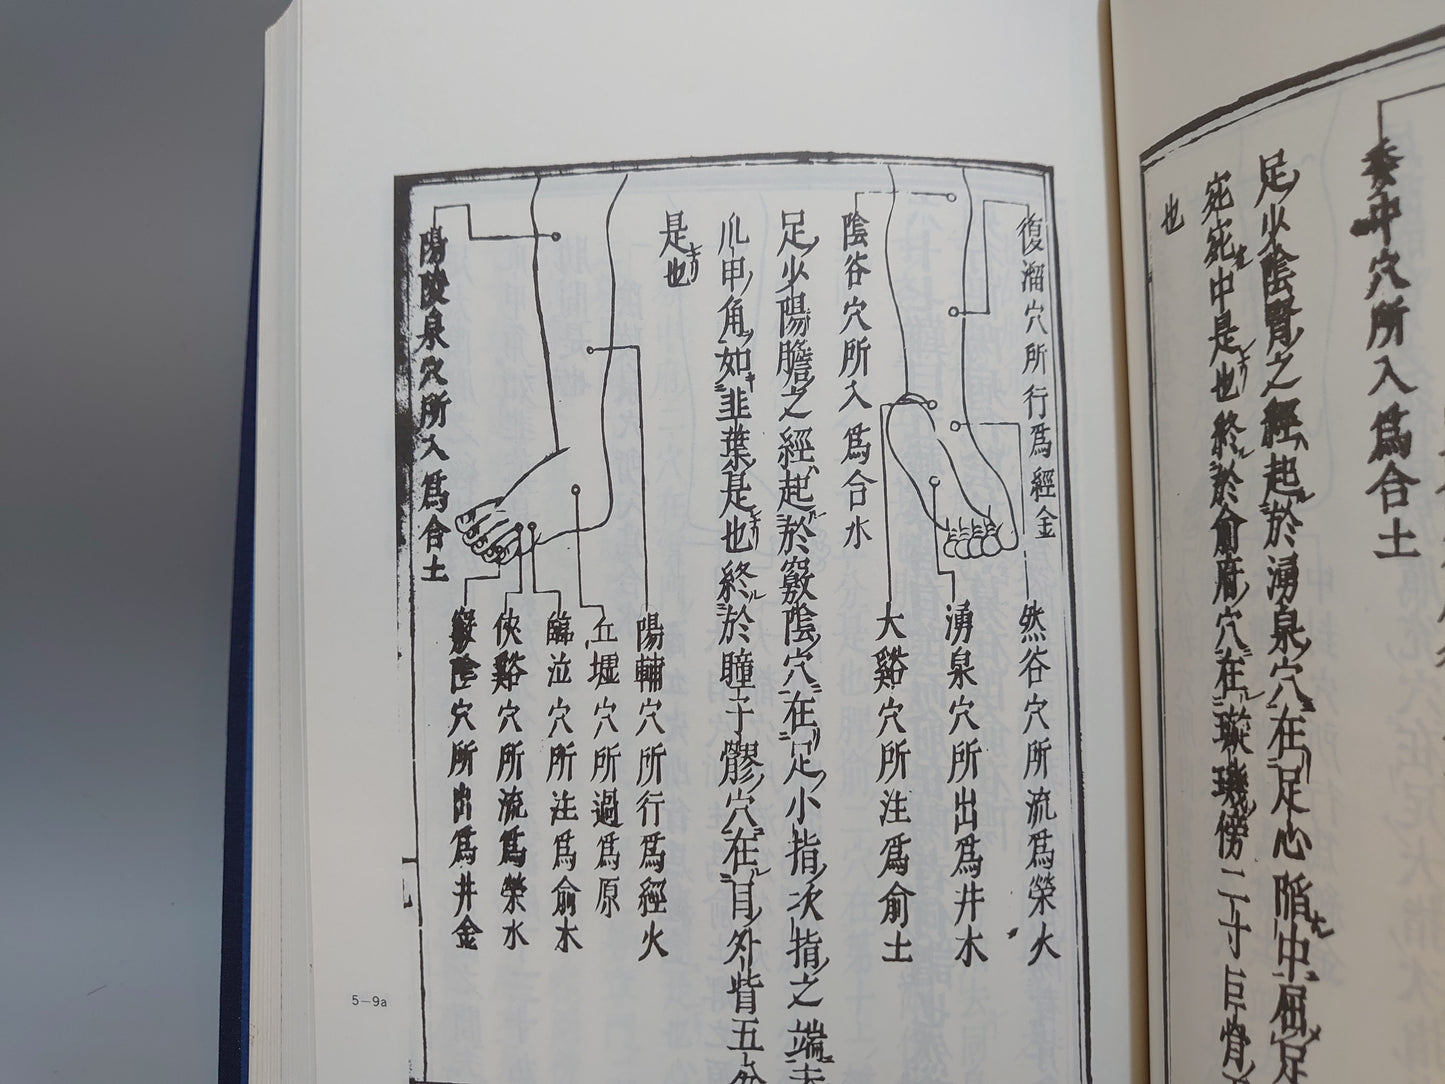 委中穴所入爲合土
足少陰腎之經起於湧泉穴在足心陷中屈足
宛宛中是也終於俞府穴在璇璣傍二寸巨骨
也
復溜穴所行爲經金
然谷穴所流爲榮火
湧泉穴所出爲井木
大谿穴所注爲俞土
陰谷穴所入爲合水
足少陽膽之經起於竅陰穴在足小指次指之端去
爪甲角如韭葉是也終於瞳子髎穴在目外眥五分
是也
陽輔穴所行爲經火
丘墟穴所過爲原
臨泣穴所注爲俞木
俠谿穴所流爲榮水
竅陰穴所出爲井金
陽陵泉穴所入爲合土
5—9a